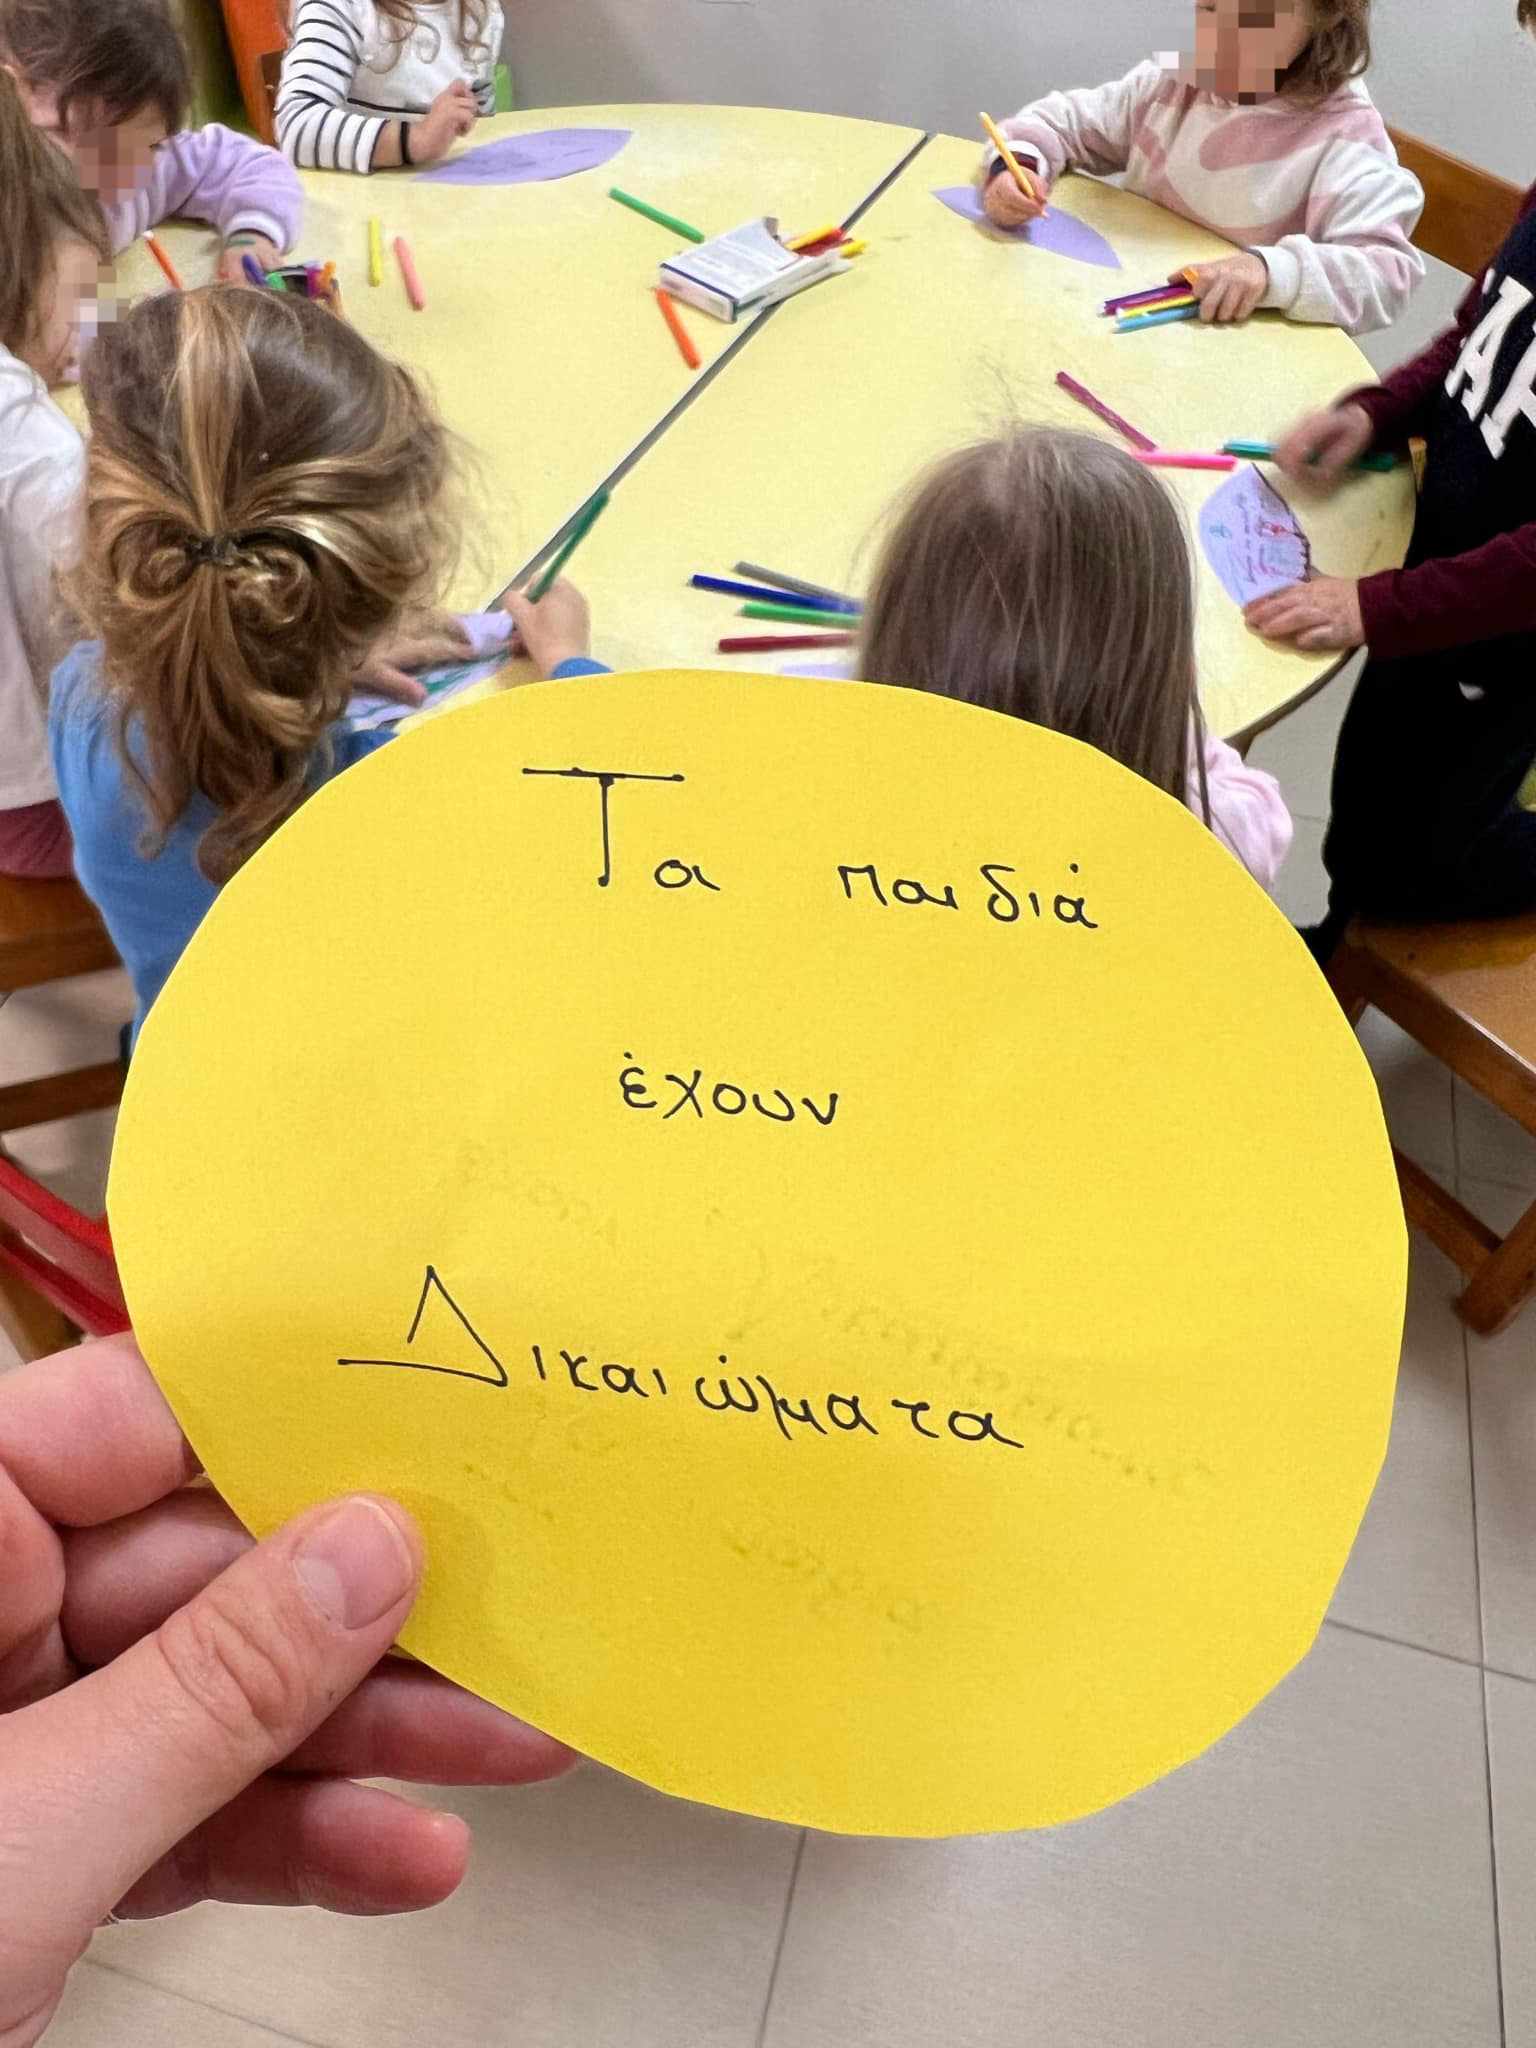 Τα παιδιά
έχουν
Δικαιώματα